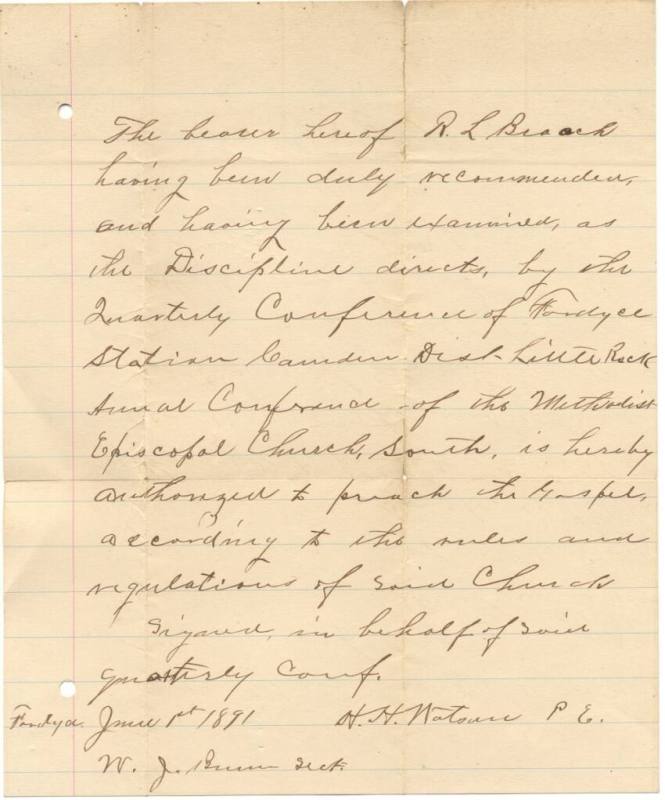 The bearer hereof R. L. Broach
having been duly recommended,
and having been examined, as
the Discipline directs, by the
Quarterly Conference of Fordyce
Station Camden Dist. Little Rock
Annual Conference of the Methodist
Episcopal Church, South, is hereby
authorized to preach the Gospel,
according to the rules and
regulations of said Church
Signed, in behalf of said
Quarterly Conf.
Fordyce. June 1st 1891 H. H. Watson P. E.
W. J. Sect.